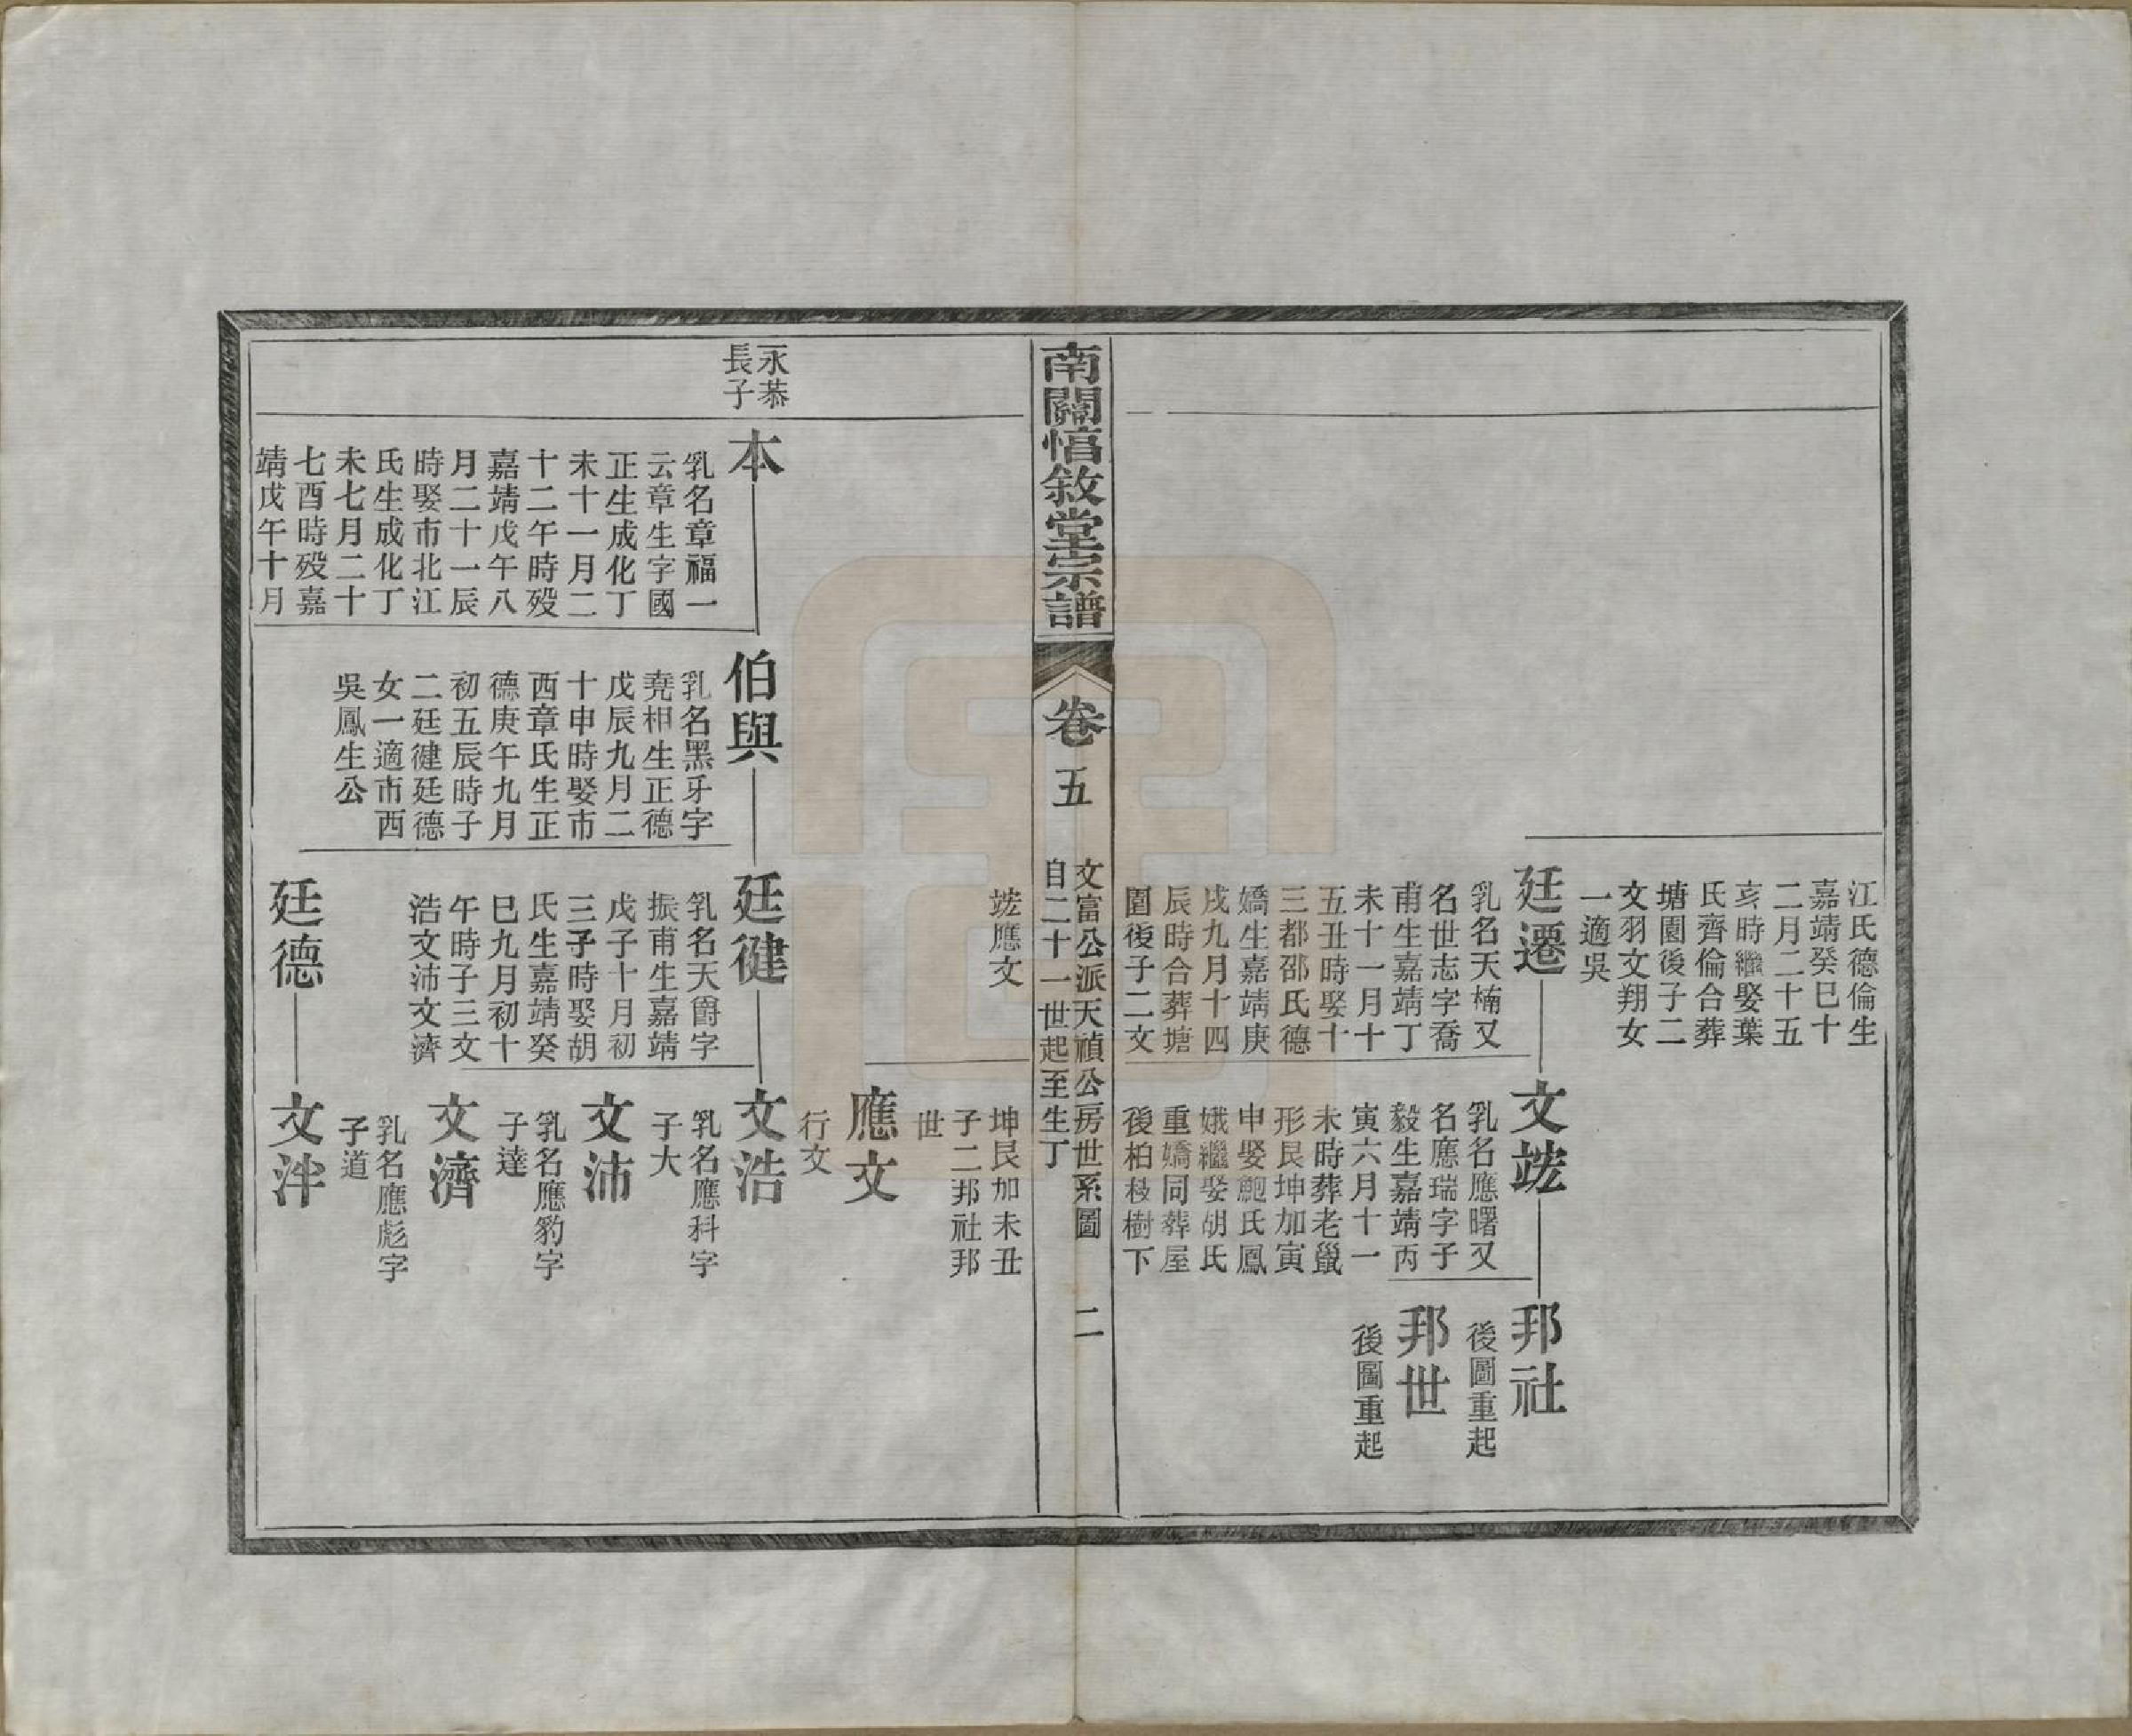 江氏德倫生
嘉靖癸巳十
二月二十五
亥時繼娶葉
氏齊倫合葬
塘園後子二
文羽文翔女
一適吳
廷遷
乳名天楠又
名世志字喬
甫生嘉靖丁
未十一月十
五丑時娶十
三都邵氏德
嬌生嘉靖庚
戌九月十四
辰時合葬塘
園後子二文
文竑
乳名應曙又
名應瑞字子
毅生嘉靖丙
寅六月十一
未時葬老鼠
形艮坤加寅
申娶鮑氏鳳
娥繼娶胡氏
重嬌同葬屋
後柏枝樹下
邦社
後圖重起
邦世
後圖重起
南關惇敘堂宗譜
卷五
文富公派天禎公房世系圖
自二十一世起至生丁
二
竑應文
坤艮加未丑
子二邦社邦
世
應文
行文
永恭
長子
本
乳名章福一
云章生字國
正生成化丁
未十一月二
十二午時歿
嘉靖戊午八
月二十一辰
時娶市北江
氏生成化丁
未七月二十
七酉時歿嘉
靖戊午十月
伯與
乳名黑牙字
堯相生正德
戊辰九月二
十申時娶市
西章氏生正
德庚午九月
初五辰時子
二廷健廷德
女一適市西
吳鳳生公
廷健
乳名天爵字
振甫生嘉靖
戊子十月初
三子時娶胡
氏生嘉靖癸
巳九月初十
午時子三文
浩文沛文濟
文浩
乳名應科字
子大
文沛
乳名應豹字
子達
文濟
乳名應彪字
子道
廷德
文泮